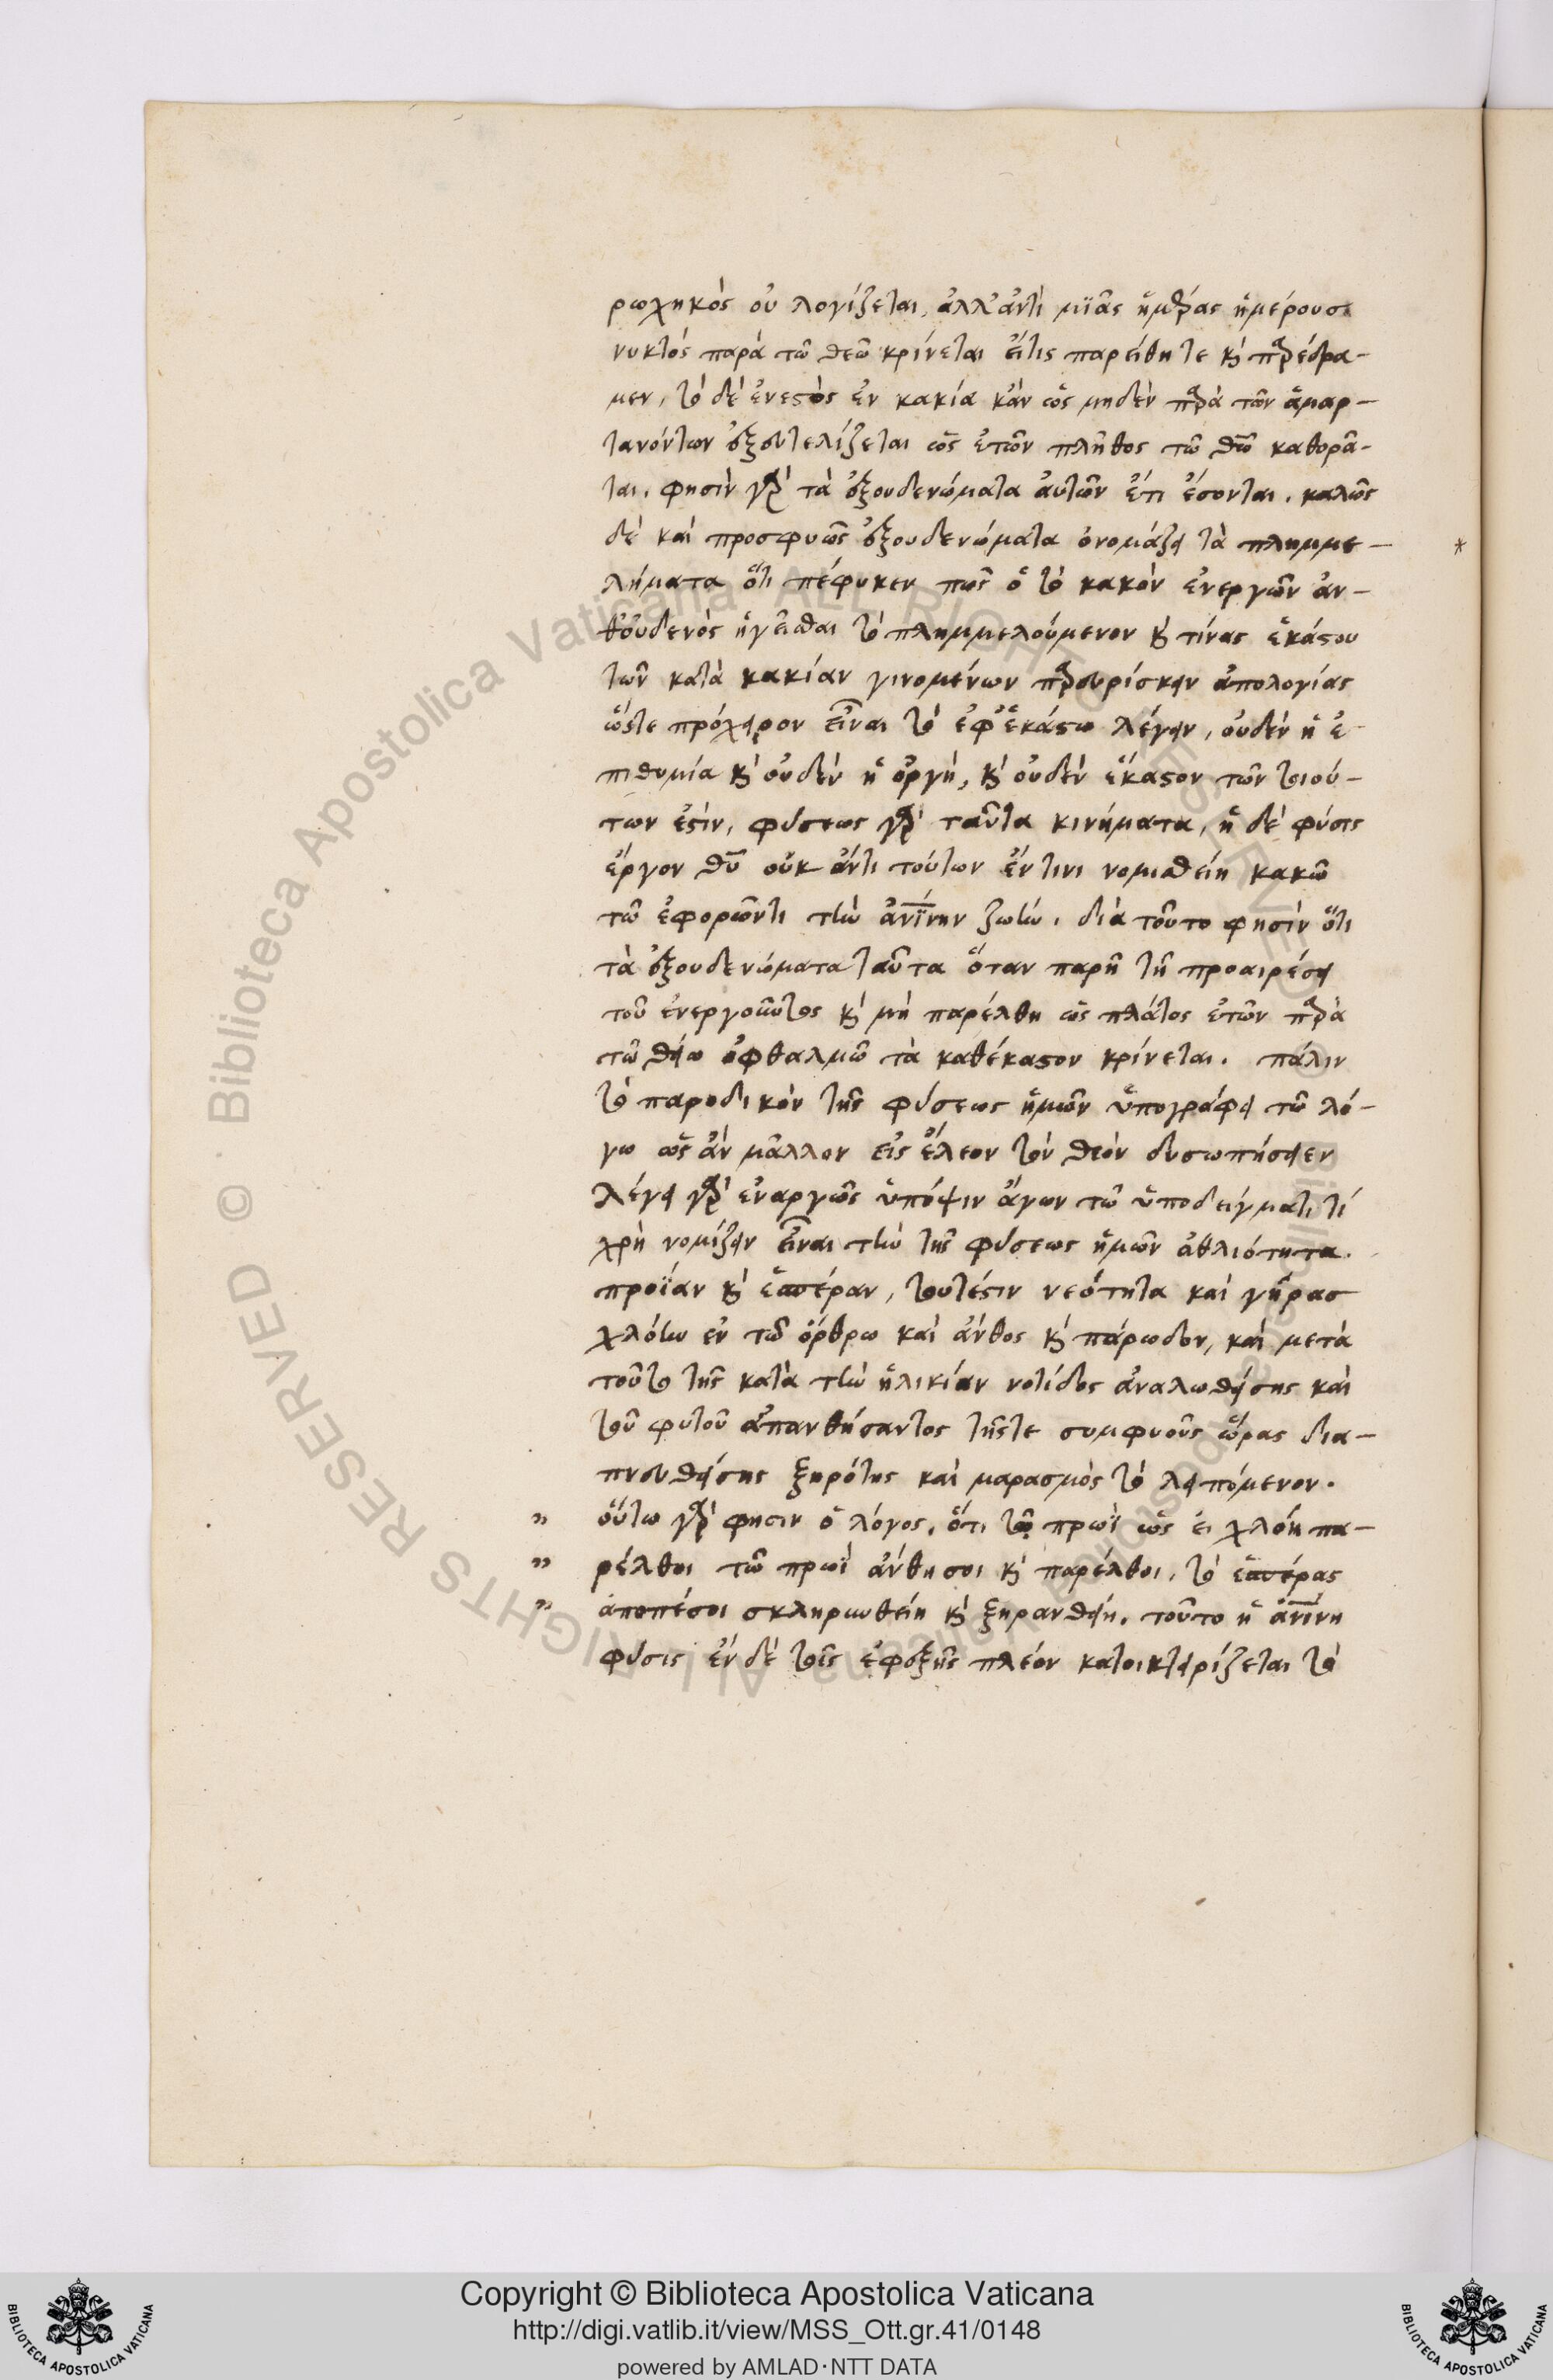 ρωχηκὸς οὐ λογίζεται, ἀλλ' ἀντὶ μϊᾶς ἡμέρας ἡμέρους
νυκτὸς παρὰ τῶ θεῶ κρίνεται εἴτις παρείθη τε κ̀ παρέδρα-
μεν, τὸ δὲ ἐνεστὸς ἐν κακία κἂν ὡς μηδὲν παρὰ τῶν ἁμαρ-
τανόντων ἐξευτελίζεται ὡς ἐτῶν πλῆθος τῶ θῶ καθορᾶ-
ται. φησὶν γὰρ τὰ ἐξουδενώματα ἀυτῶν ἔτι ἔσονται. καλῶς
δὲ καὶ προσφυῶς ἐξουδενώματα ὀνομάζει τὰ πλημμε-
λήματα ὅτι πέφυκεν πως ὁ τὸ κακὸν ἐνεργῶν ἀν-
θ' οὐδενὸς ἡγεῖσθαι τὸ πλημμελούμενον κ̀ τίνας ἑκάστου
τῶν κατὰ κακίαν γινομένων παρευρίσκειν ἀπολογίας
ὥστε πρόχειρον εἶναι τὸ ἐφ' ἑκάστω λέγειν, οὐδὲν ἡ ἐ-
πιθυμία κ̀ οὐδὲν ἡ ὀργὴ, κ̀ οὐδὲν ἕκαστον τῶν τοιού-
των ἐστὶν, φύσεως γὰρ ταῦτα κινήματα, ἡ δὲ φύσις
ἔργον θυ οὐκ ἄντι τούτων ἔν τινι νομισθείη κακῶ
τῶ ἐφορῶντι τὴν ἀνίνην ζωὴν. διὰ τοῦτο φησὶν ὅτι
τὰ ἐξουδενώματα ταῦτα ὅταν παρῆ τῆ προαιρέσει
τοῦ ἐνεργοῦντος κ̀ μὴ παρέλθη ὡς πλάτος ἐτῶν παρὰ
τῶ θείω ὀφθαλμῶ τὰ καθέκαστον κρίνεται. πάλιν
τὸ παροδικὸν τῆς φύσεως ἡμῶν ὑπογράφει τῶ λό-
γω ὡς ἂν μᾶλλον εἰς ἔλεον τὸν θεὸν δυσωπήσειεν
λέγει γὰρ ἐναργῶς ὑπόψιν ἄγων τῶ ὑποδείγματι τί
χρὴ νομίζειν εἶναι τὴν τῆς φύσεως ἡμῶν ἀθλιότητα.
πρσΐαν κ̀ ἑσπέραν, τουτέστιν νεότητα καὶ γῆρας
χλόην ἐν τῶ ὄρθρω καὶ ἄνθος κ̀ πάρωδον, καὶ μετὰ
τοῦτο τῆς κατὰ τὴν ἡλικίαν νοτίδος ἀναλωθείσης καὶ
τοῦ φυτοῦ ἀπανθήσαντος τῆς τε συμφυοῦς ὥρας δια-
πνευθείσης ξηρότης καὶ μαρασμὸς τὸ λειπόμενον.
" οὕτω γάρ φησιν ὁ λόγος, ὅτι τῶ πρωῒ ὡς εἰ χλόη πα-
" ρέλθοι τῶ πρωῒ ἀνθήσοι κ̀ παρέλθοι, τὸ ἑσπέρας
" ἀποπέσοι σκληρωθείη κ̀ ξηρανθείη. τοῦτο ἡ ἀνίνη
φύσις ἐν δὲ τοῖς ἐφεξῆς πλέον κατοικτειρίζεται τὸ
*
Copyright © Biblioteca Apostolica Vaticana
http://digi.vatlib.it/view/MSS_Ott.gr.41/0148
powered by AMLAD·NTT DATA